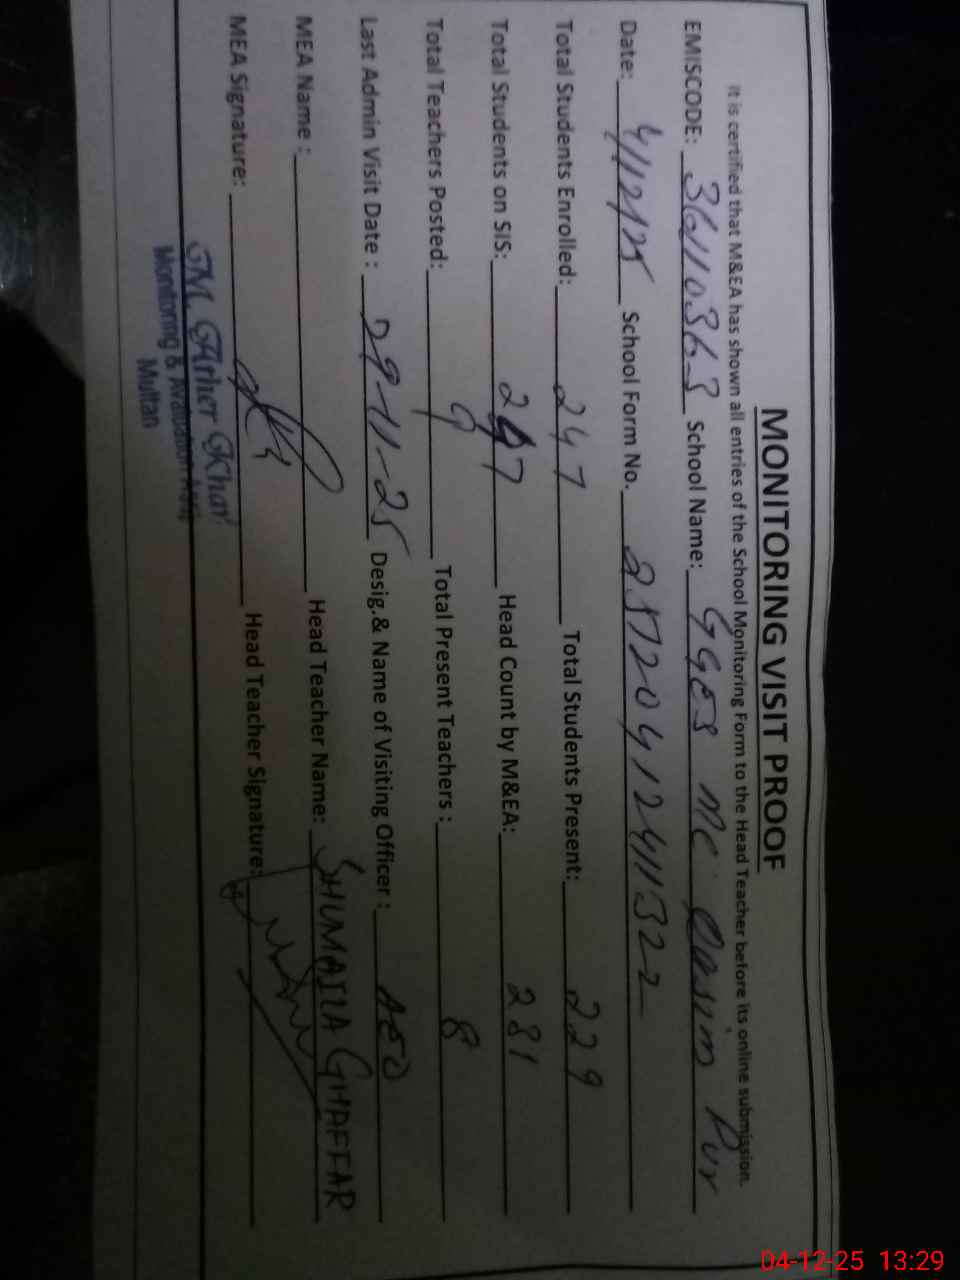 MONITORING VISIT PROOF
It is certified that M&EA has shown all entries of the School Monitoring Form to the Head Teacher before its online submission.
EMISCODE: 36110363 School Name: GGES MC Qasim Pur
Date: 4/12/25 School Form No. 2572041241132 2
Total Students Enrolled: 247 Total Students Present: 229
Total Students on SIS: 247 Head Count by M&EA: 231
Total Teachers Posted: 9 Total Present Teachers : 8
Last Admin Visit Date : 29-11-25 Desig.& Name of Visiting Officer : AEO
MEA Name : Head Teacher Name: SHUMAILA GHAFFAR
MEA Signature: Head Teacher Signature:
Khan
Monitoring &
Multan
04-12-25 13:29